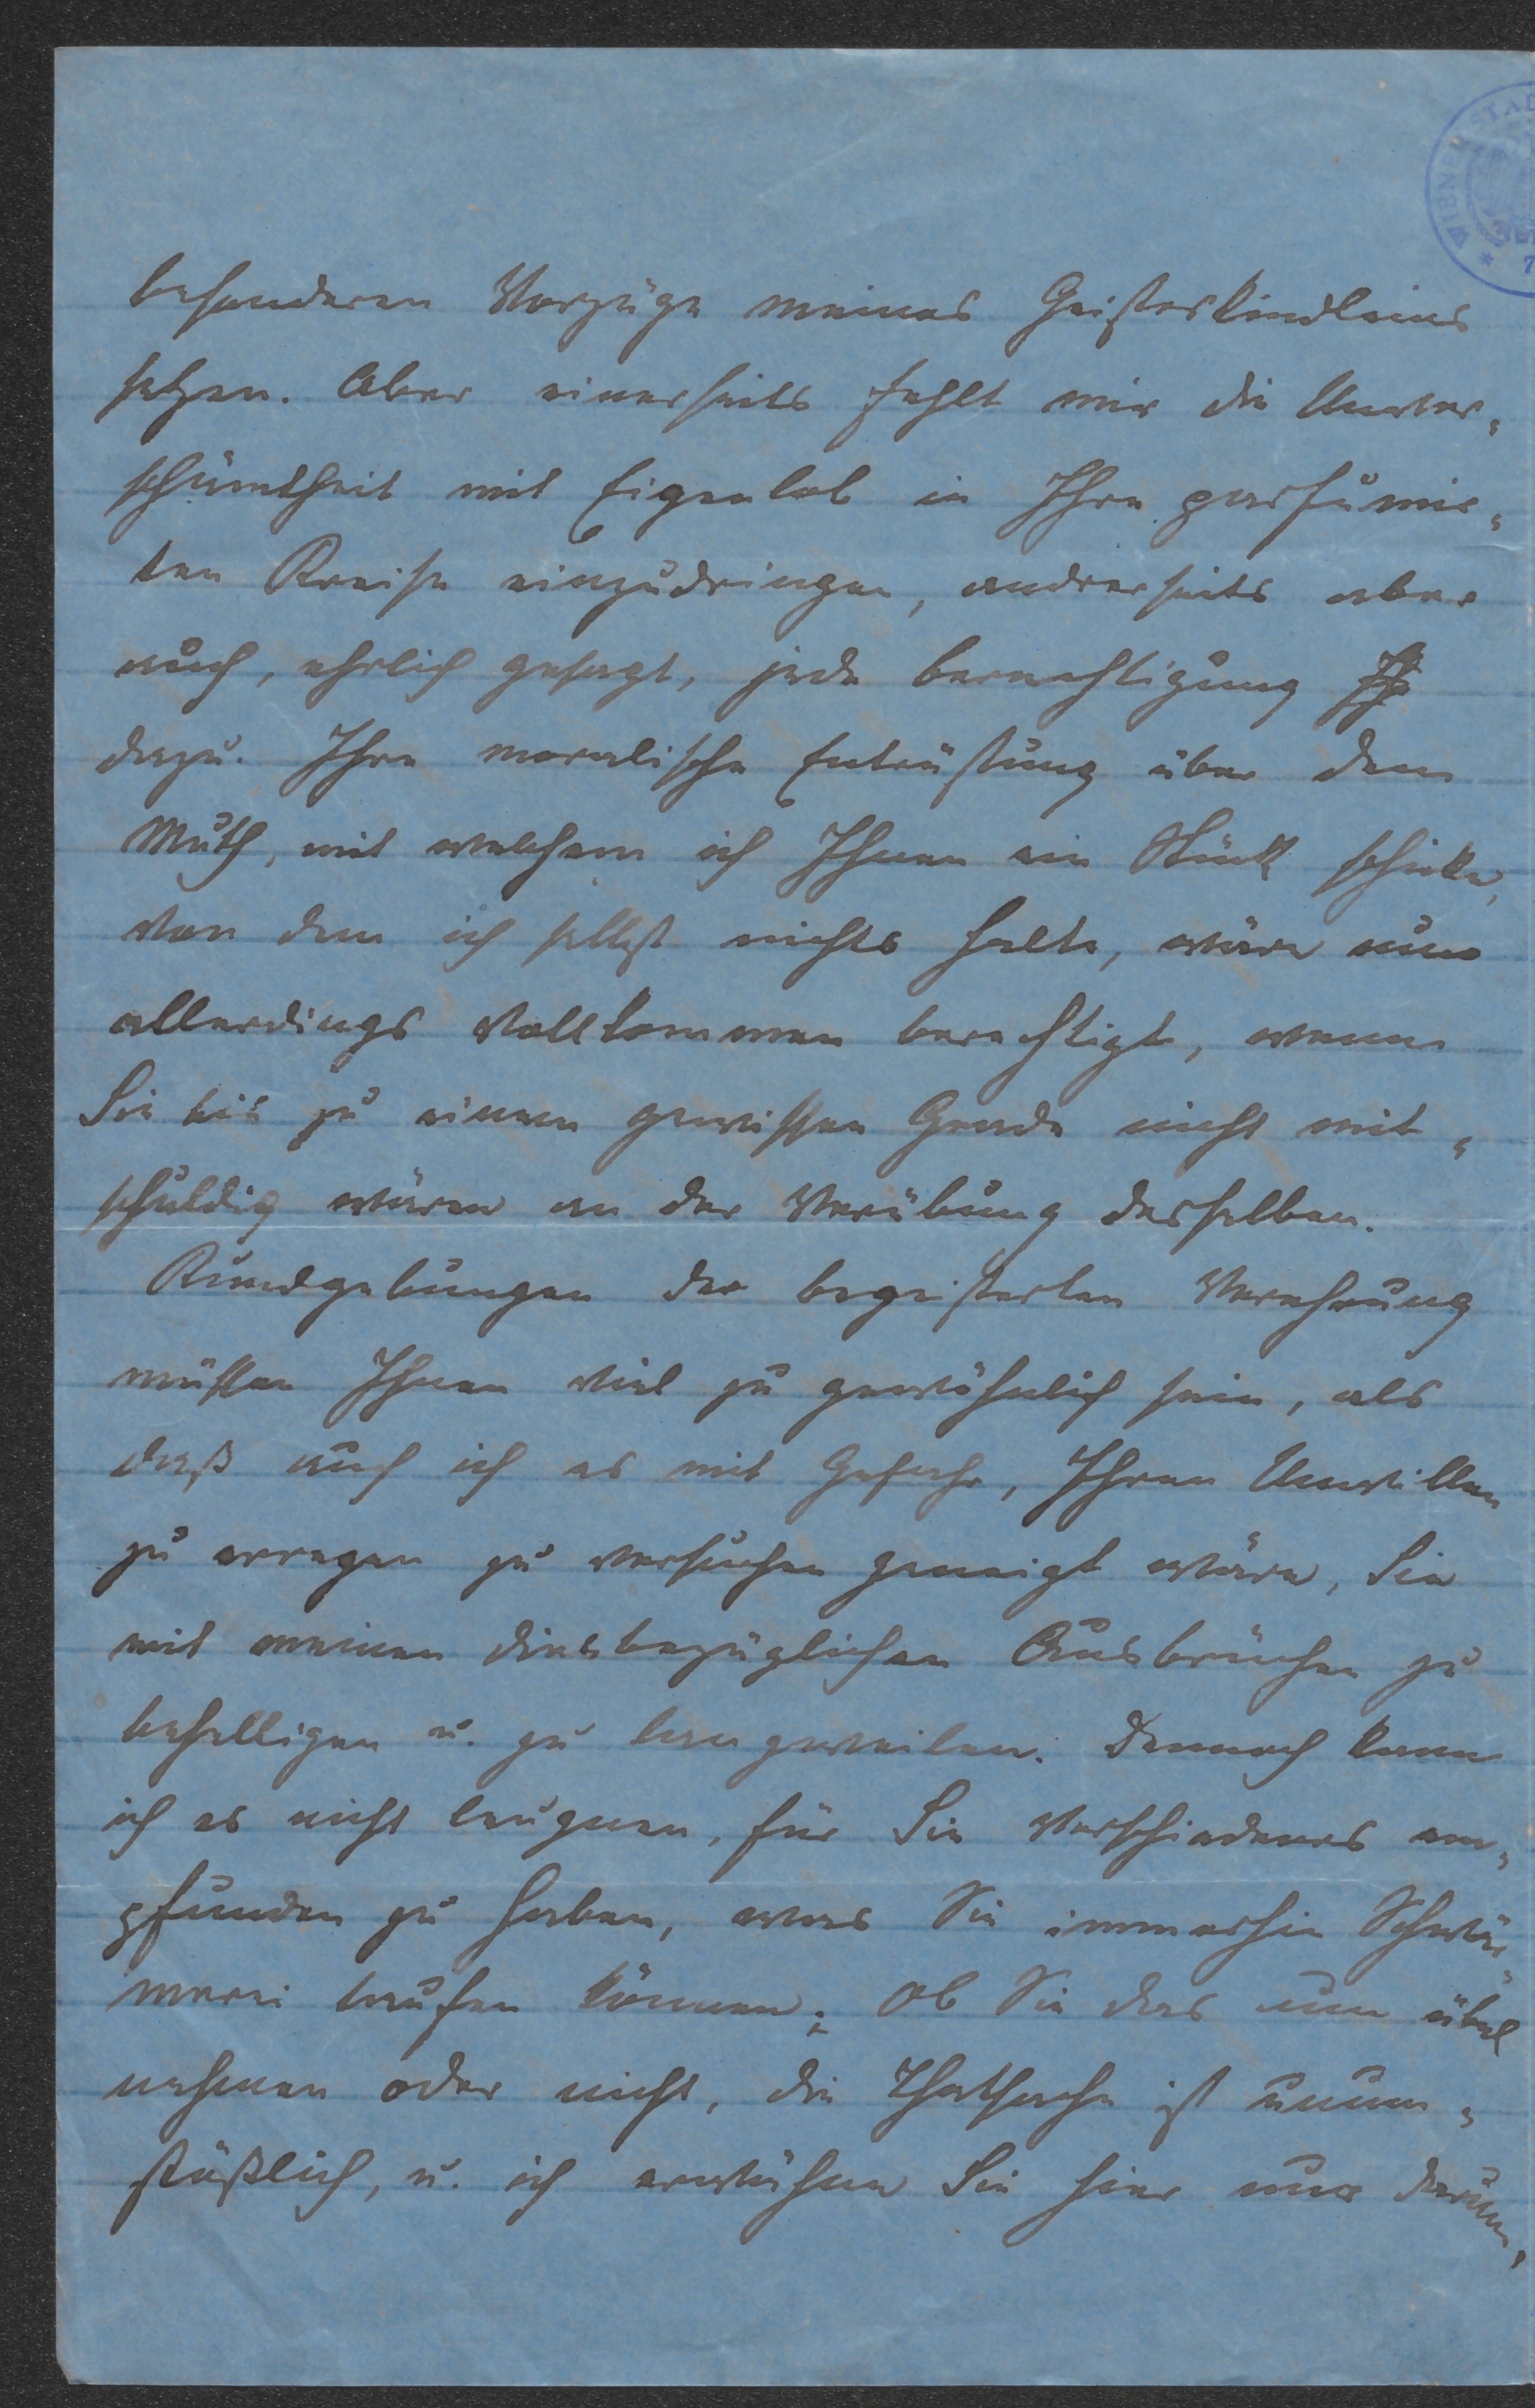 WIENER STAD
7
besonderen Vorzüge meines Geisteskindleins
setzen. Aber einerseits fehlt mir die Unver„
schämtheit mit Eigenlob in Ihre parfümir„
ten Kreise einzudringen, andrerseits aber
auch, ehrlich gesagt, jede Berechtigung
dazu. Ihre moralische Entrüstung über den
Muth, mit welchem ich Ihnen ein Stück schicke,
von dem ich selbst nichts halte, wäre nun
allerdings vollkommen berechtigt, wenn
Sie bis zu einem gewissen Grade nicht mit„
schuldig wären an der Verübung desselben.
Kundgebungen der begeisterten Verehrung
müssen Ihnen viel zu gewöhnlich sein, als
daß auch ich es mit Gefahr, Ihren Unwillen
zu erregen zu versuchen geneigt wäre, Sie
mit meinen diesbezüglichen Ausbrüchen zu
behelligen u. zu langweilen. Dennoch kann
ich es nicht leugnen, für Sie Verschiedenes em„
pfunden zu haben, was Sie immerhin Schwär„
merei taufen können; ob Sie das nun übel
nehmen oder nicht, die Thatsache ist unum„
stößlich, u. ich erwähne Sie hier nur darum,